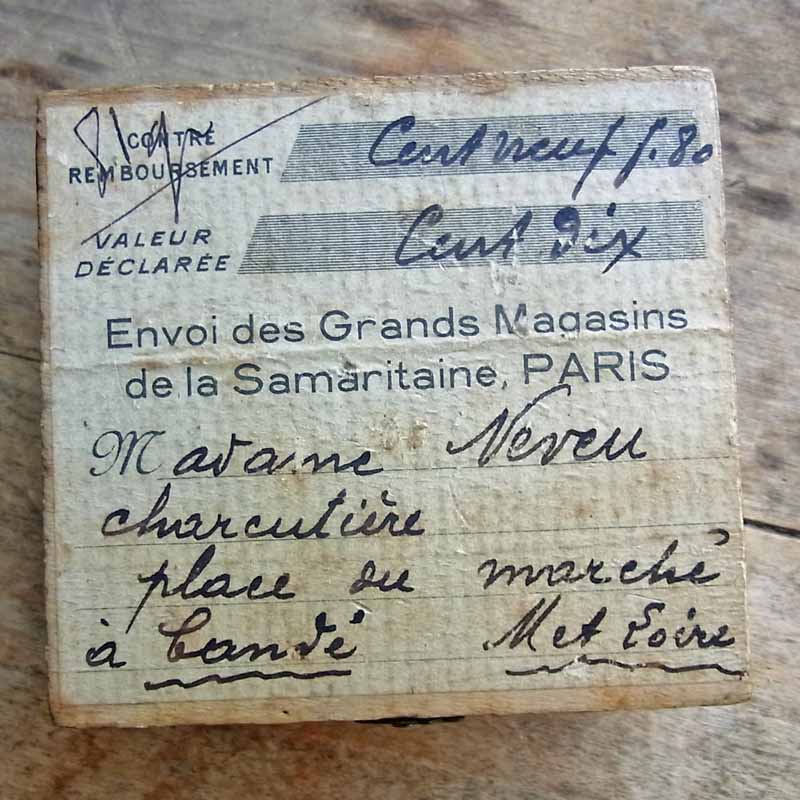 CONTRE
REMBOURSEMENT
Cent neuf f. 80
VALEUR
DÉCLARÉE
Cent dix
Envoi des Grands Magasins
de la Samaritaine, PARIS
Madame Neveu
charcutière
place du marché
à Candé M et Loire